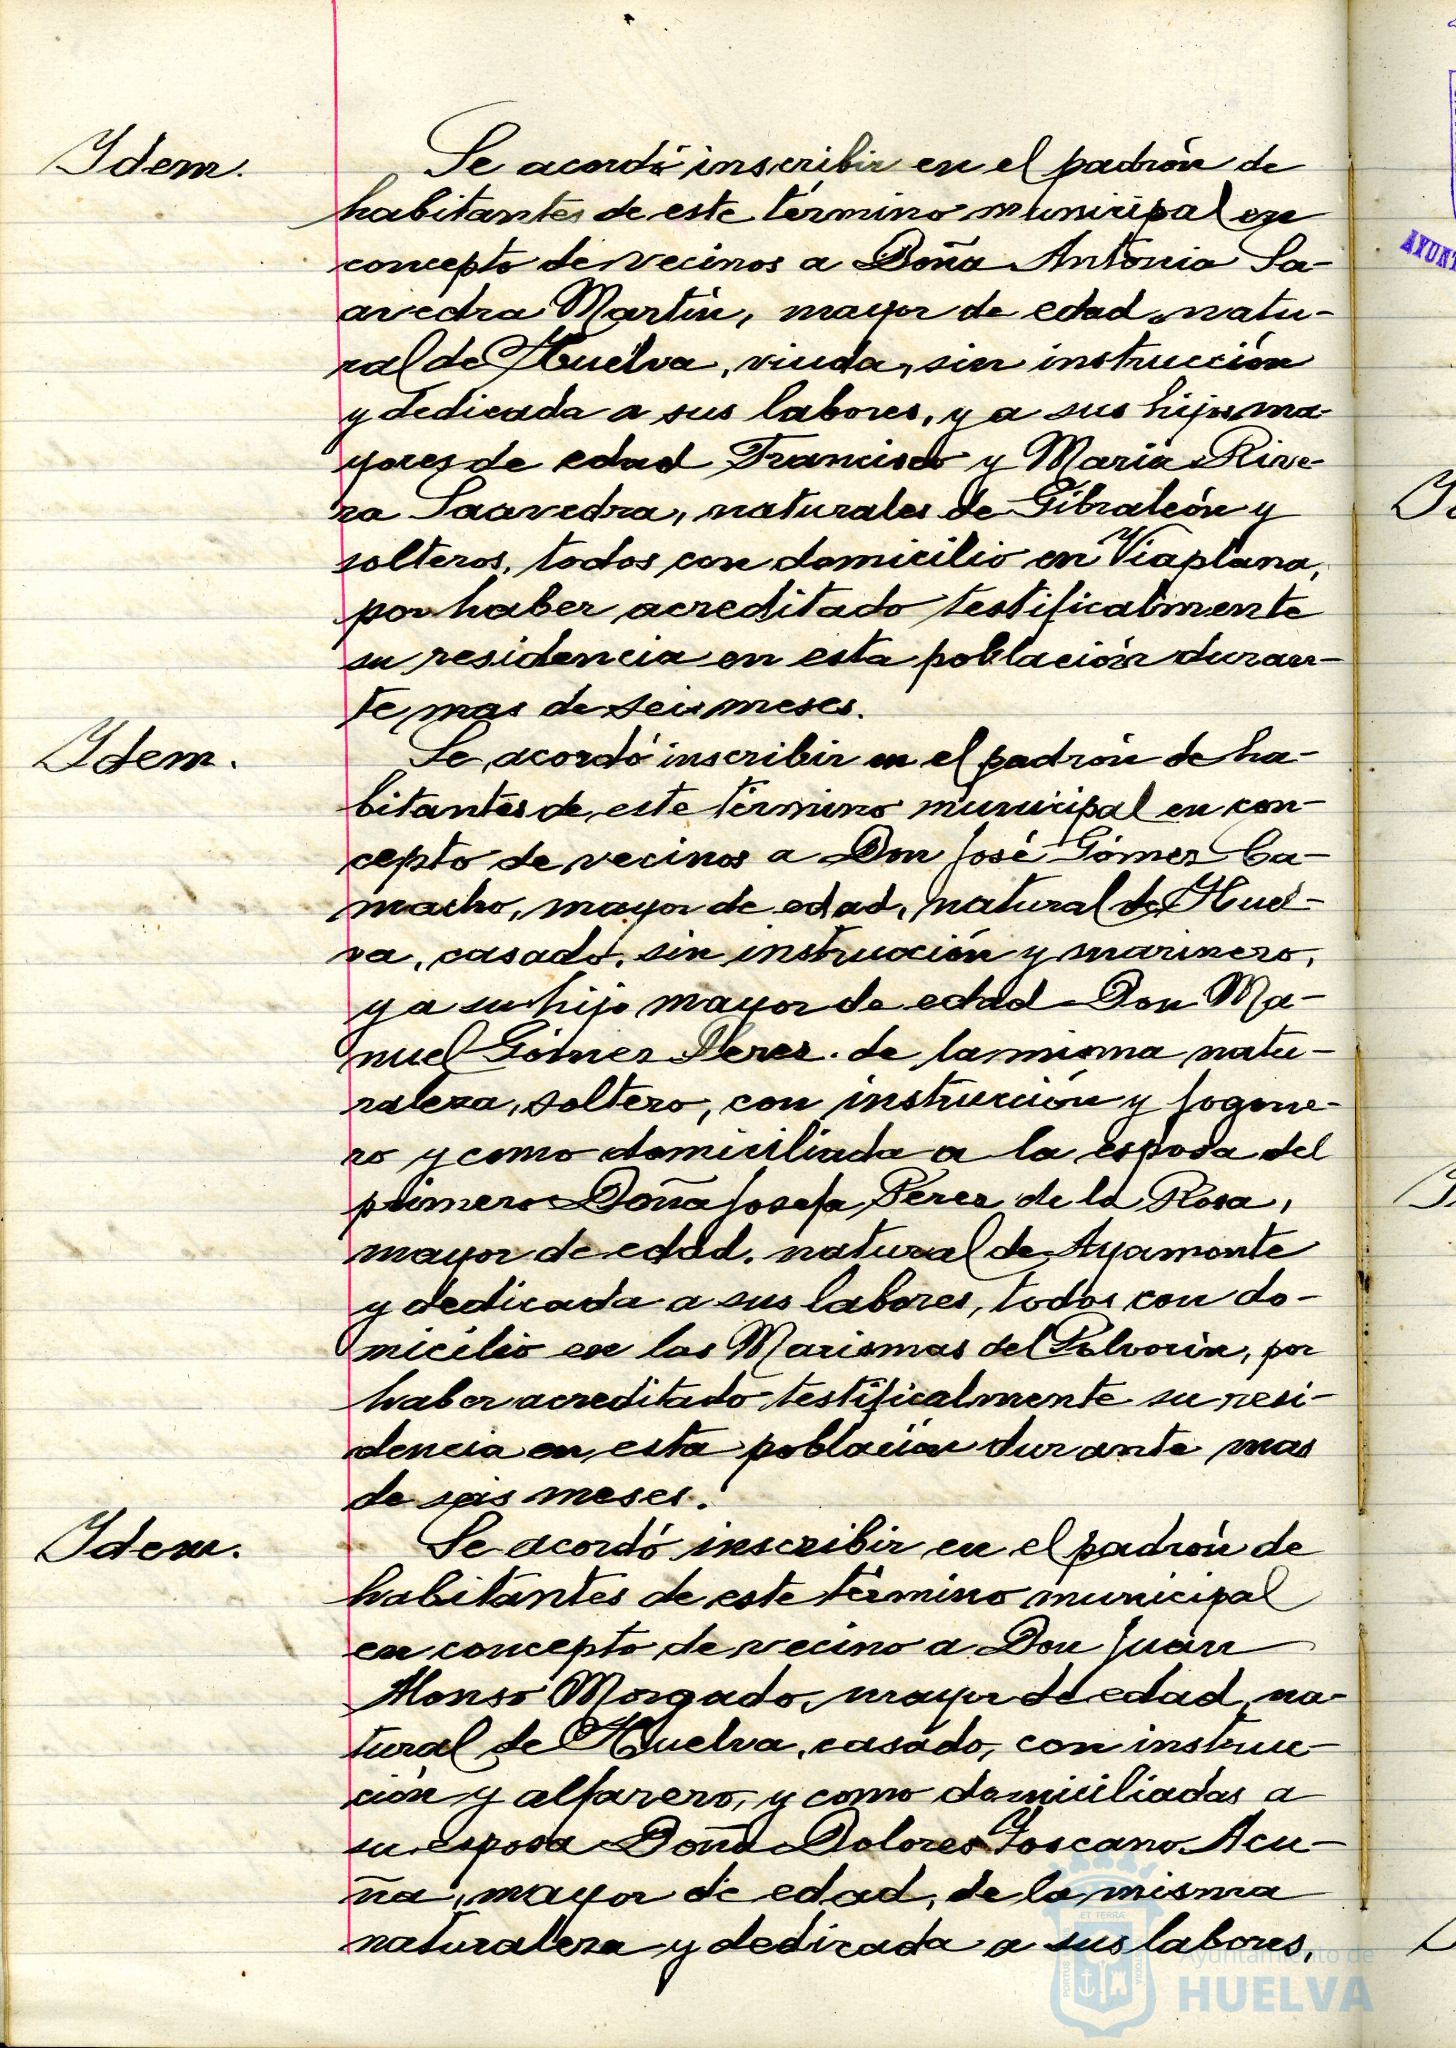 Idem.
Se acordó inscribir en el padrón de
habitantes de este término municipal en
concepto de vecinos a Doña Antonia Sa-
avedra Martín, mayor de edad, natu-
ral de Huelva, viuda, sin instrucción
y dedicada a sus labores, y a sus hijos ma-
yores de edad Francisco y María Rive-
ra Saavedra, naturales de Gibraleón y
solteros, todos con domicilio en Viaplana,
por haber acreditado testificalmente
su residencia en esta población duran-
te mas de seis meses.
Idem.
Se acordó inscribir en el padrón de ha-
bitantes de este término municipal en con-
cepto de vecinos a Don José Gómez Ca-
macho, mayor de edad, natural de Huel-
va, casado, sin instrucción y marinero,
y a su hijo mayor de edad Don Ma-
nuel Gómez Perez. de la misma natu-
raleza, soltero, con instrucción y fogone-
ro y como domiciliada a la esposa del
primero Doña Josefa Pérez de la Rosa,
mayor de edad, natural de Ayamonte
y dedicada a sus labores, todos con do-
micilio en las Marismas del Polvorín, por
haber acreditado testificalmente su resi-
dencia en esta población durante mas
de seis meses.
Idem.
Se acordó inscribir en el padrón de
habitantes de este término municipal
en concepto de vecino a Don Juan
Alonso Morgado, mayor de edad, na-
tural de Huelva, casado, con instruc-
ción y alfarero, y como domiciliadas a
su esposa Doña Dolores Toscano Acu-
ña, mayor de edad, de la misma
naturaleza y dedicada a sus labores,
Ayuntamiento de
HUELVA
AYUNT